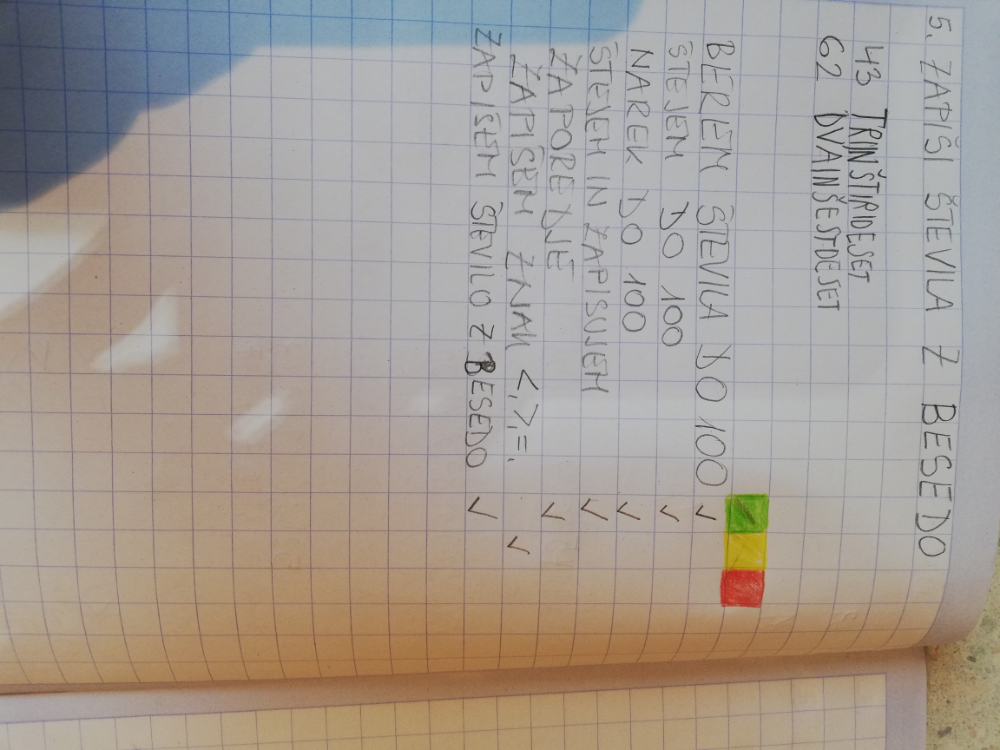 5. ZAPIŠI ŠTEVILA Z BESEDO
43 TRINŠTIRIDESET
62 DVAINŠESTDESET
BEREM ŠTEVILA DO 100 ✓
ŠTEJEM DO 100 ✓
NAREK DO 100 ✓
ŠTEJEM IN ZAPISUJEM ✓
ZAPOREDJE ✓
ZAPIŠEM ZNAK <,>,=. ✓
ZAPIŠEM ŠTEVILO Z BESEDO ✓